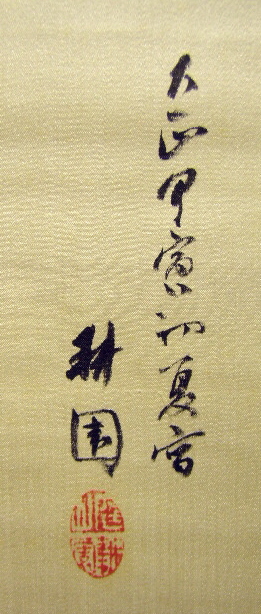 大正甲寅初夏写
耕園